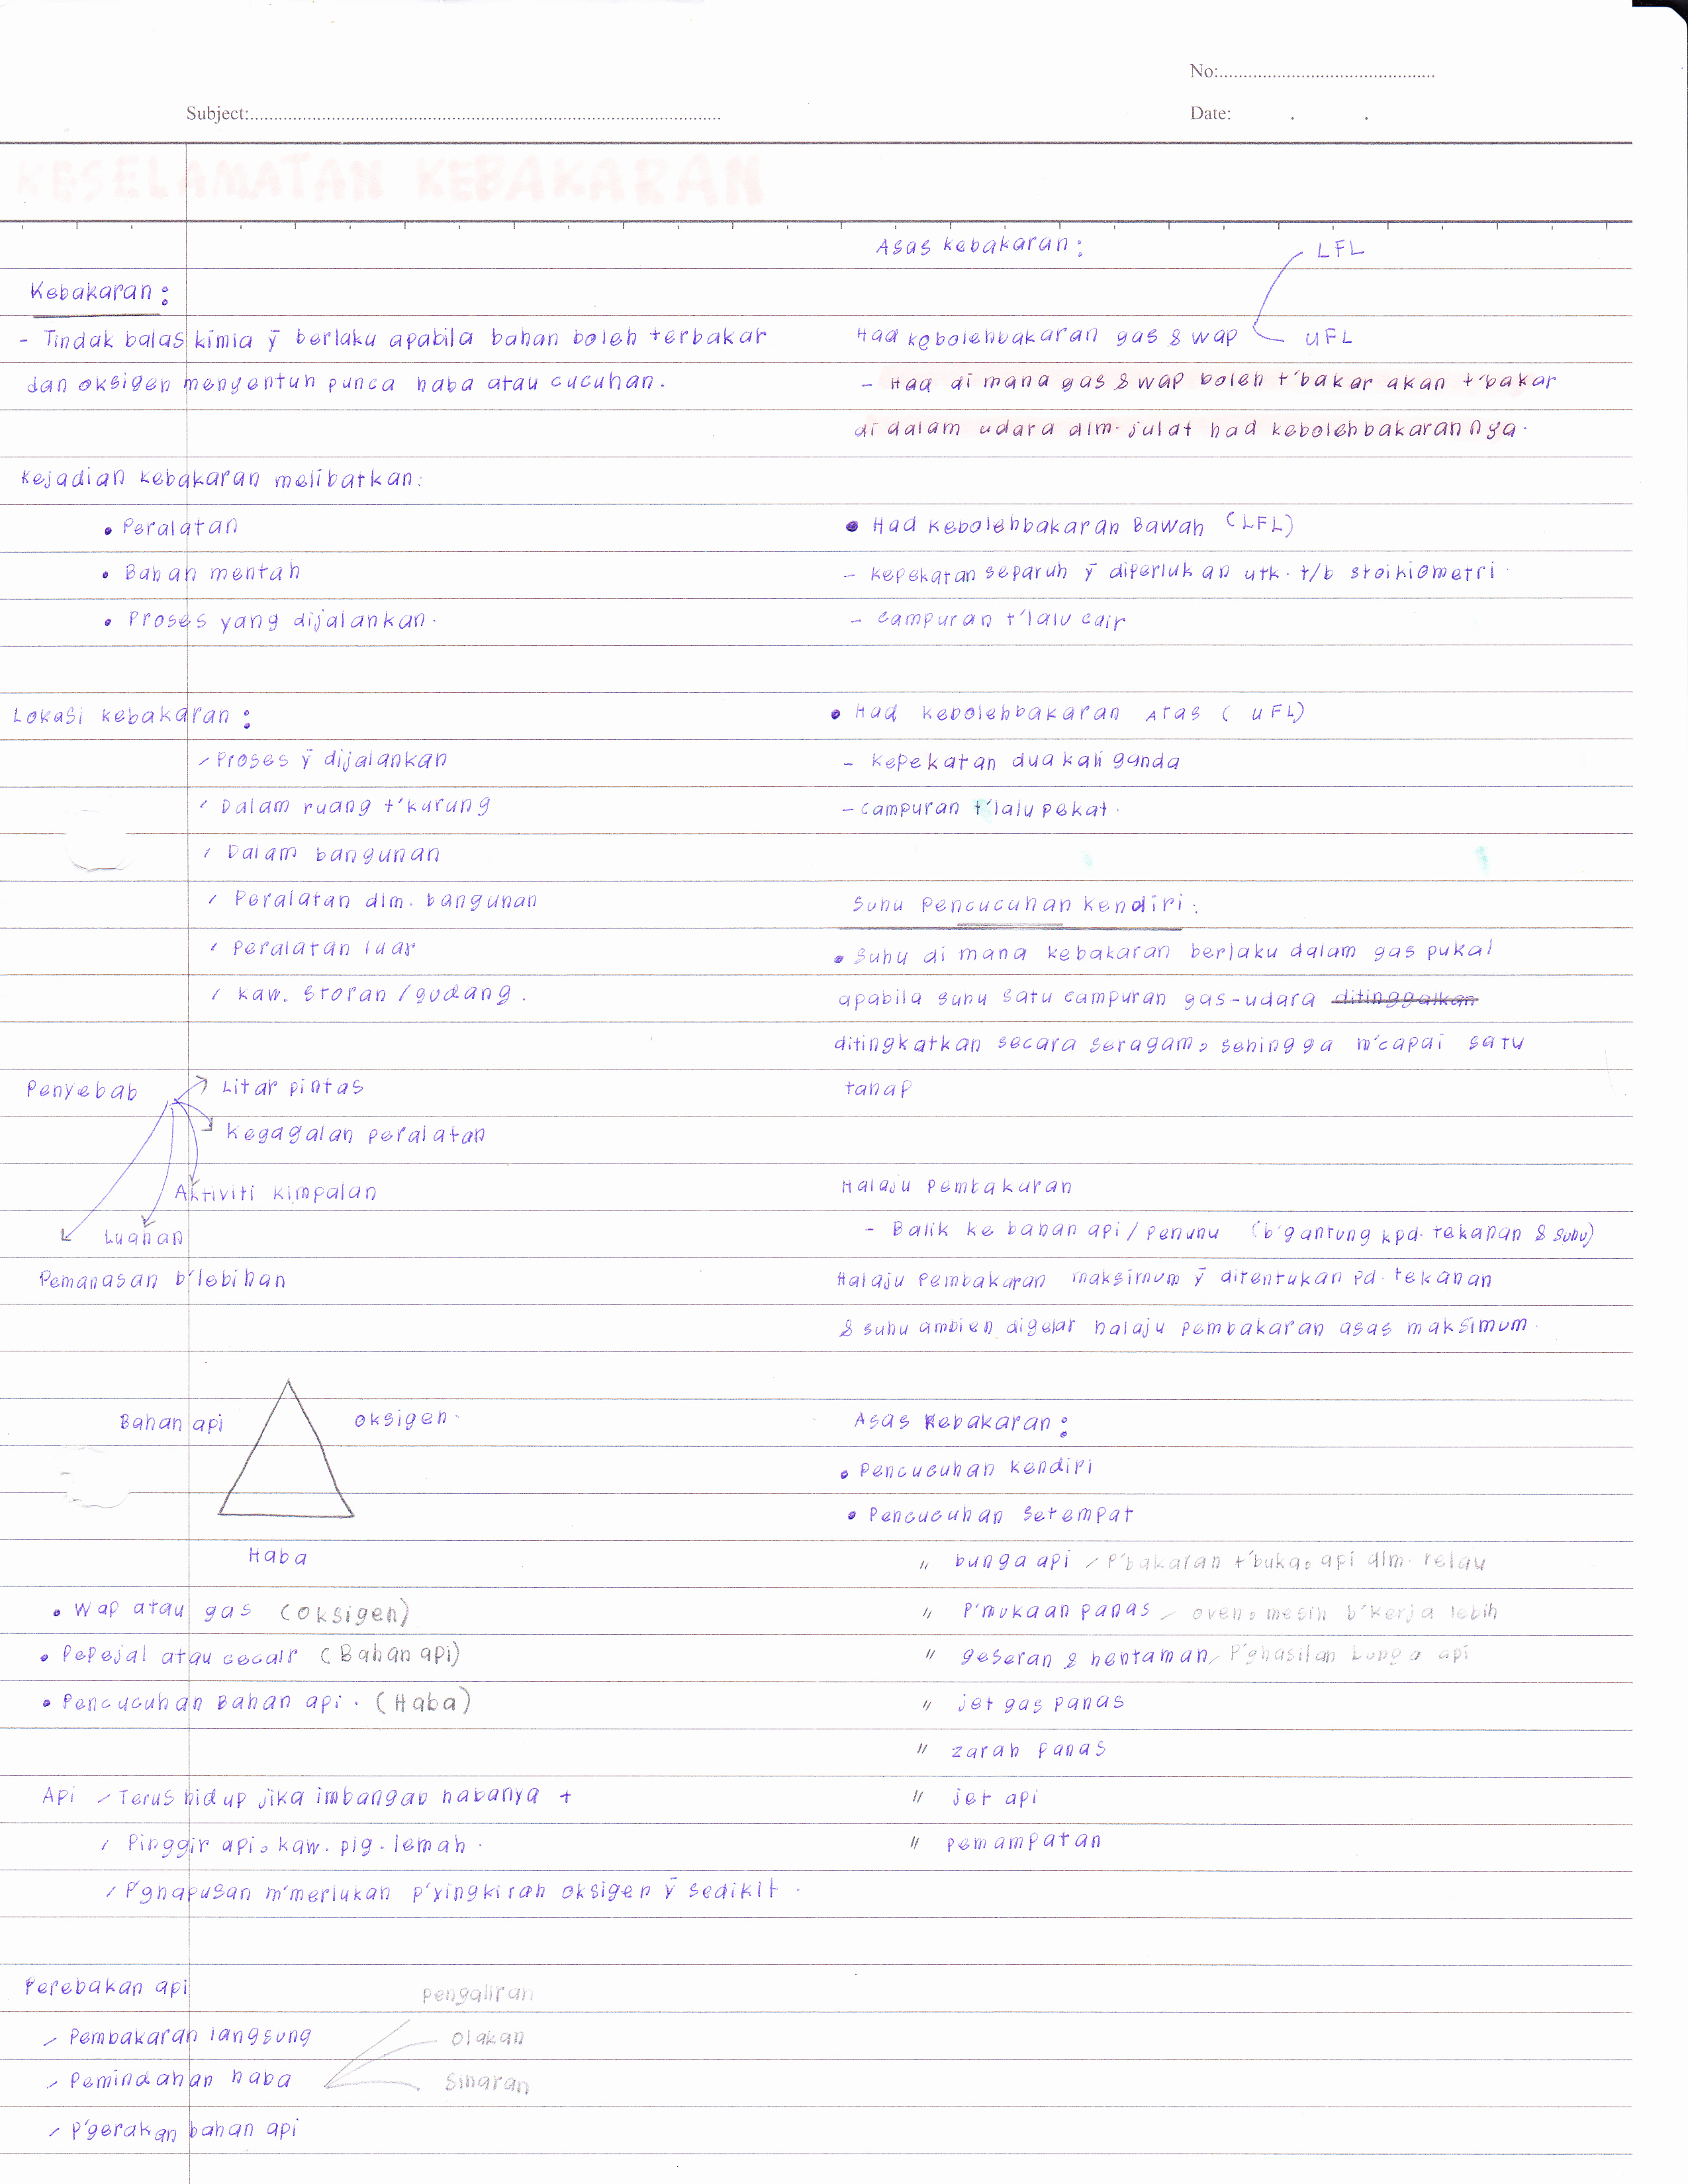 No:
Subject:
Date: . .
KESELAMATAN KEBAKARAN
Kebakaran :
- Tindak balas kimia ȳ berlaku apabila bahan boleh terbakar
dan oksigen menyentuh punca haba atau cucuhan.
Kejadian kebakaran melibatkan:
• Peralatan
• Bahan mentah
• Proses yang dijalankan.
Lokasi kebakaran :
/ Proses ȳ dijalankan
/ Dalam ruang t'kurung
/ Dalam bangunan
/ Peralatan dlm. bangunan
/ Peralatan luar
/ kaw. storan / gudang.
Penyebab
Litar pintas
Kegagalan peralatan
Aktiviti kimpalan
Luahan
Pemanasan b'lebihan
Bahan api
oksigen.
Haba
• Wap atau gas (oksigen)
• Pepejal atau cecair (Bahan api)
• Pencucuhan Bahan api. (Haba)
Api / Terus hidup jika imbangan habanya +
/ Pinggir api, kaw. plg. lemah.
/ P'ghapusan m'merlukan p'yingkirah oksigen ȳ sedikit.
Perebakan api
/ Pembakaran langsung
/ Pemindahan haba
Pengaliran
Olakan
Sinaran
/ P'gerakan bahan api
Asas kebakaran :
Had kebolehbakaran gas & wap
LFL
UFL
- Had di mana gas & wap boleh t'bakar akan t'bakar
di dalam udara dlm. julat had kebolehbakarannya.
• Had Kebolehbakaran Bawah (LFL)
- kepekatan separuh ȳ diperlukan utk. t/b stoikiometri
- campuran t'lalu cair
• Had kebolehbakaran Atas ( UFL)
- kepekatan dua kali ganda
- campuran t'lalu pekat.
Suhu Pencucuhan Kendiri :
• Suhu di mana kebakaran berlaku dalam gas pukal
apabila suhu satu campuran gas-udara ditinggalkan
ditingkatkan secara seragam, sehingga m'capai satu
tahap
Halaju Pembakaran
- Balik ke bahan api / penunu (b'gantung kpd. tekanan & suhu)
Halaju Pembakaran maksimum ȳ ditentukan pd. tekanan
& suhu ambien digelar halaju pembakaran asas maksimum.
Asas Kebakaran :
• Pencucuhan Kendiri
• Pencucuhan Setempat
" bunga api / P'bakaran t'buka, api dlm. relau
" P'mukaan panas / oven, mesin b'kerja lebih
" geseran & hentaman / P'ghasilan bunga api
" jet gas panas
" zarah panas
" jet api
" pemampatan